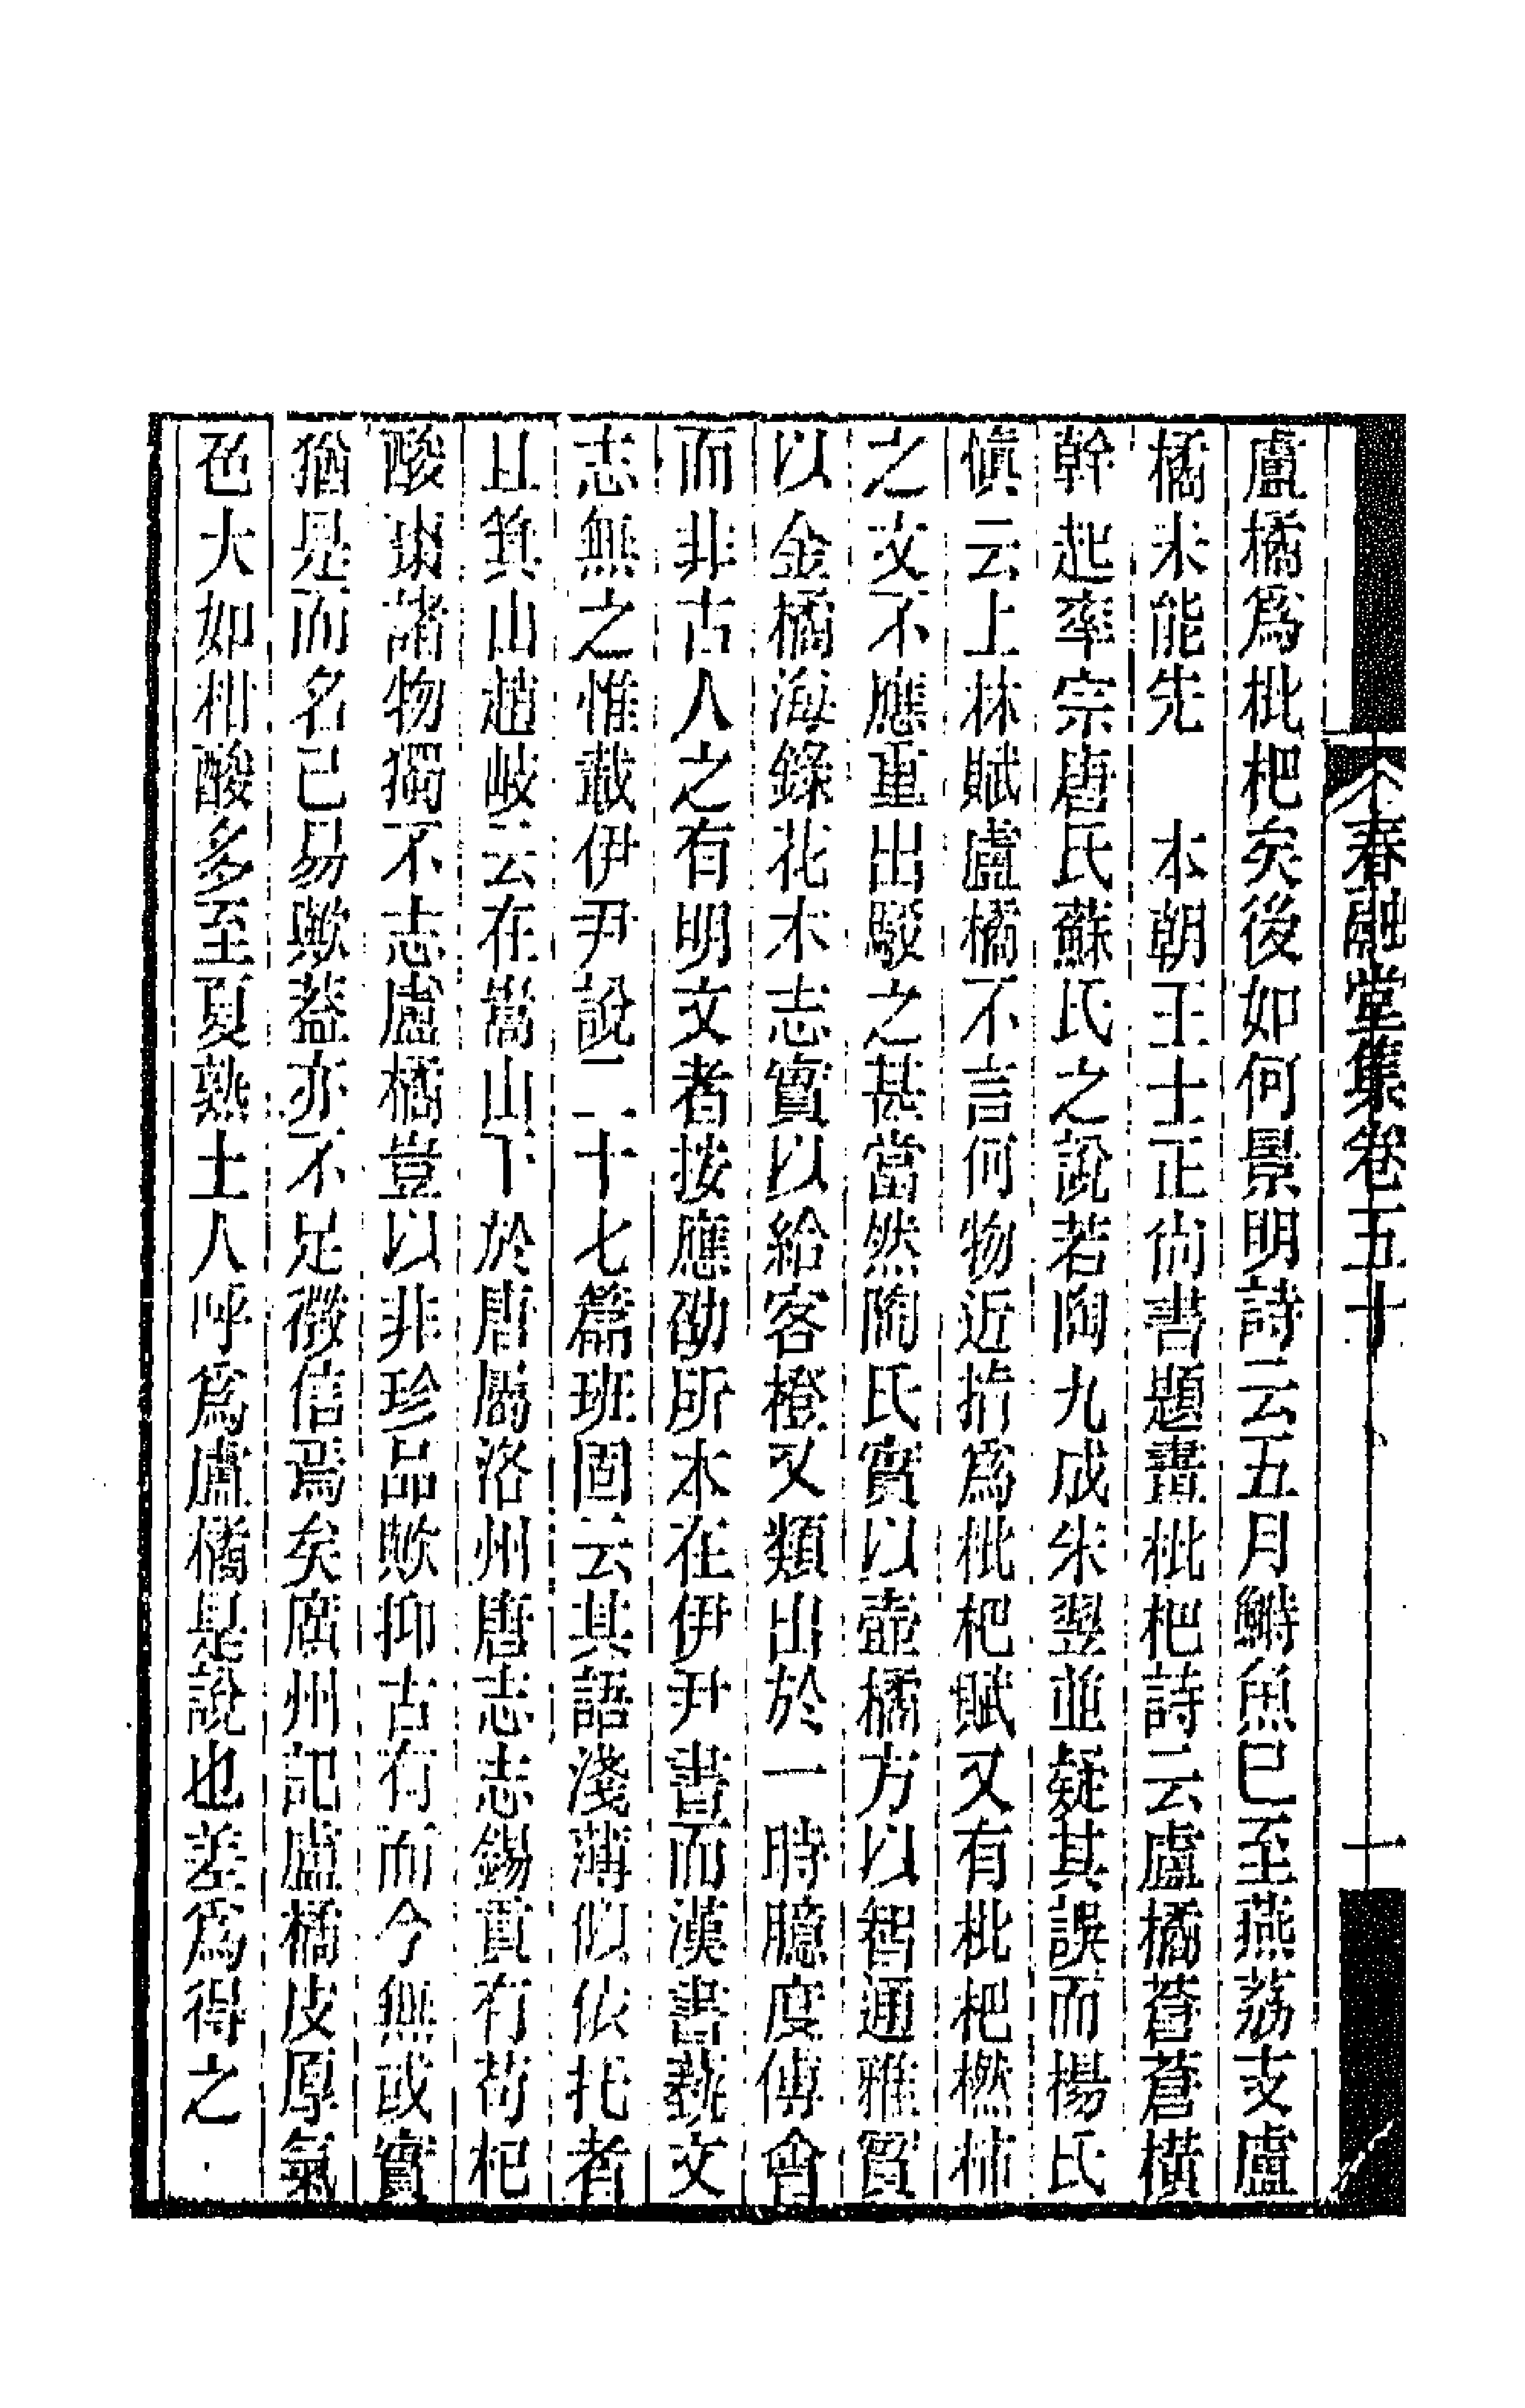 春融堂集卷五十
十
盧橘爲枇杷矣後如何景明詩云五月鰣魚已至燕荔支盧
橘未能先　本朝王士正尚書題畫枇杷詩云盧橘蒼蒼橫
幹起率宗唐氏蘇氏之說若陶九成朱翌並疑其誤而楊氏
愼云上林賦盧橘不言何物近指爲枇杷賦又有枇杷橪柿
之文不應重出駁之甚當然陶氏實以壺橘方以智通雅實
以金橘海錄花木志實以給客橙又類出於一時臆度傅會
而非古人之有明文者按應劭所本在伊尹書而漢書藝文
志無之惟載伊尹說二十七篇班固云其語淺薄似依托者
且箕山趙岐云在嵩山下於唐屬洛州唐志志錫貢有茍杞
酸棗諸物獨不志盧橘豈以非珍品歟抑古有而今無或實
猶是而名已易歟葢亦不足徵信焉矣廣州記盧橘皮厚氣
色大如柑酸多至夏熟土人呼爲盧橘是說也差爲得之